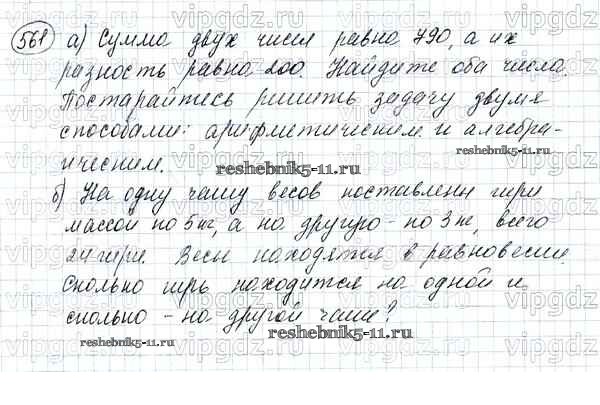 561 а) Сумма двух чисел равна 790, а их
разность равна 200. Найдите оба числа.
Постарайтесь решить задачу двумя
способами: арифметическим и алгебра-
ическим.
reshebnik5-11.ru
reshebnik5-11.ru
б) На одну чашу весов поставлены гири
массой по 5 кг, а на другую - по 3 кг, всего
24 гири. Весы находятся в равновесии.
Сколько гирь находится на одной и
сколько - на другой чаше?
reshebnik5-11.ru
reshebnik5-11.ru
vipgdz.ru